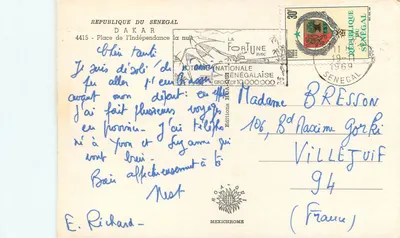 REPUBLIQUE DU SENEGAL
DAKAR
4415 - Place de l'Indépendance la nuit
Chère tante
Je suis désolé de
pu aller t'embrasser
avant mon départ: en effet
j'ai fait plusieurs voyages
en province. J'ai téléphoné
ni à Yvon et Suzanne qui
vont bien.
Bien affectueusement à ti
E. Richard
LA FORTUNE avec
INTERNATIONALE
SENEGALAISE
GROS LOT 10.000.000
30F
REPUBLIQUE DU SENEGAL
1969
SENEGAL
Madame BRESSON
106, Bd Maxime Gorki
VILLEJUIF
94
(France)
MEXICHROME